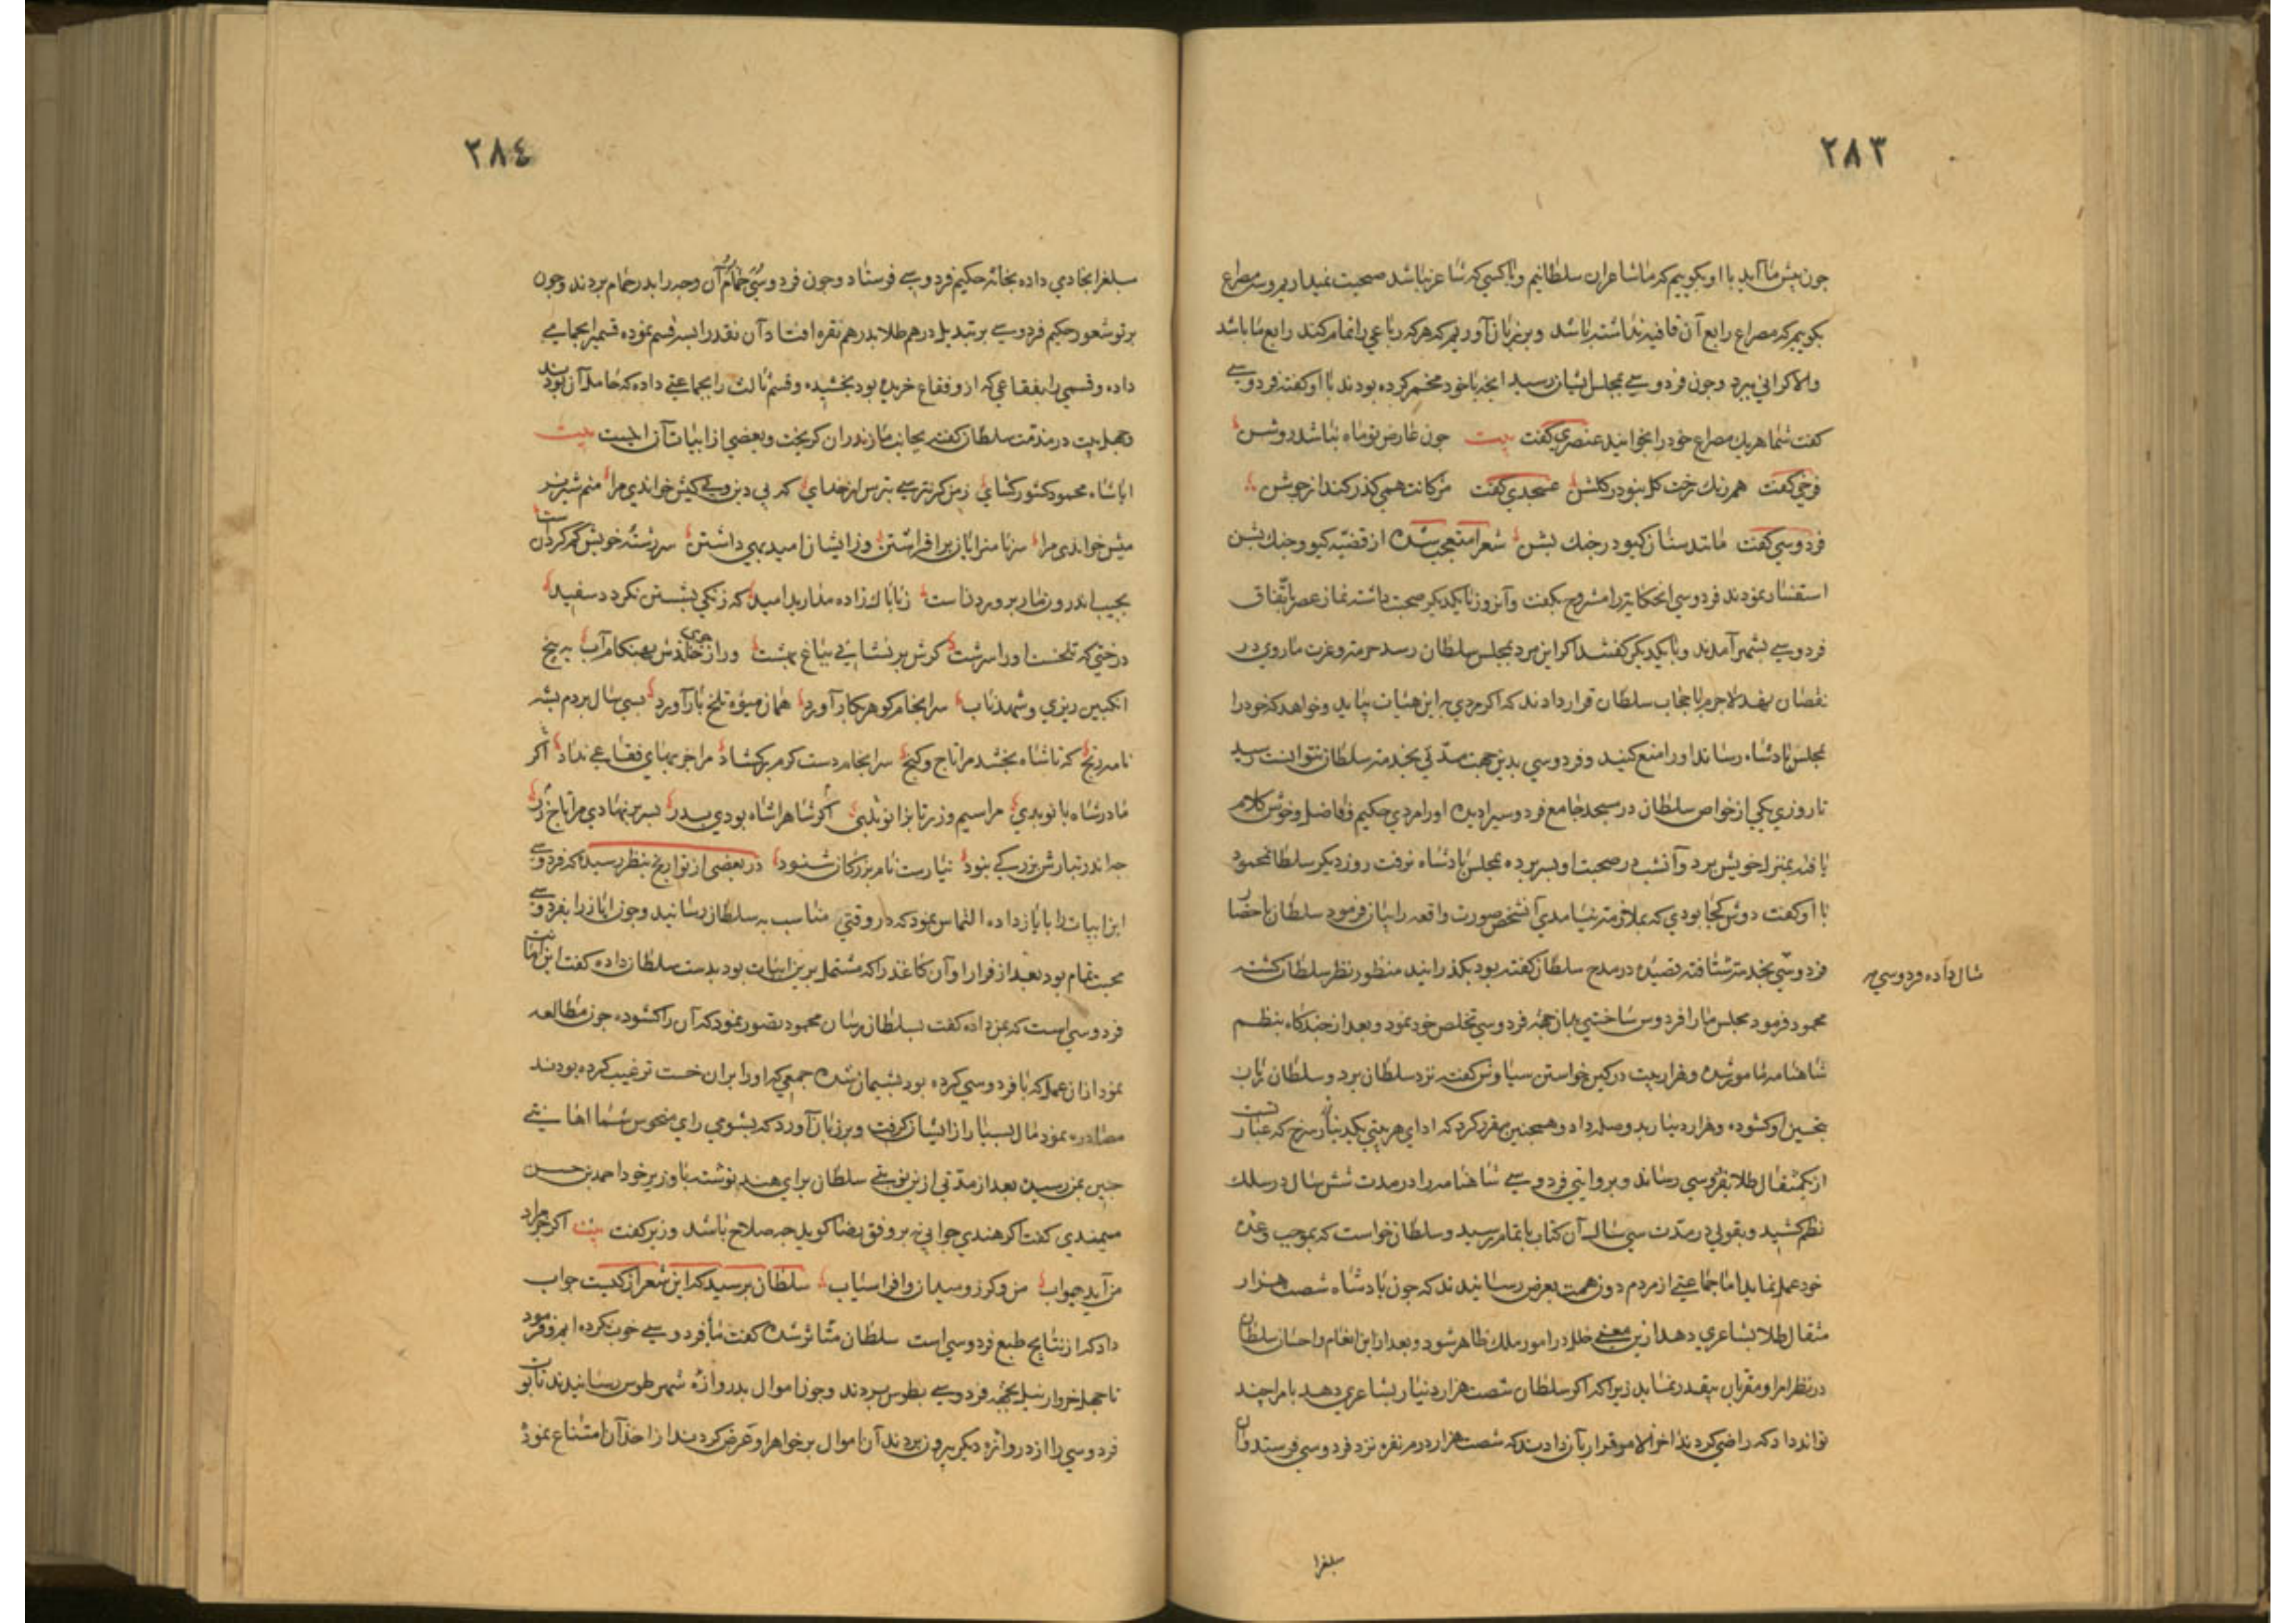 ٢٨٣
چون پیش ما آید با او بگوییم که ما شاعران سلطانیم و با کسی که شاعر نباشد صحبت نمیداریم و سه مصراع
بگوییم که مصراع رابع آن قافیه نداشته باشد و بر زبان آوریم که هر که رباعی را تمام کند رابع ما باشد
والا کرانی ببرد و چون فردوسی بمجلس ایشان رسید آنچه با خود مخمر کرده بودند با او گفتند فردوسی
گفت شما هر یک مصراع خود را بخوانید عنصری گفت بیت چون عارض تو ماه نباشد روشن
فرخی گفت همرنگ رخت گل نبود در گلشن عسجدی گفت مژگانت همی گذر کند از جوشن
فردوسی گفت مانند سنان گیو در جنگ پشن شعرا متعجب شده از قضیه گیو و جنگ پشن
استفسار نمودند فردوسی آنحکایترا مشروح بگفت و آنروز با یکدیگر صحبت داشته نماز عصر باتفاق
فردوسی بشهر آمدند و با یکدیگر گفتند اگر این مرد بمجلس سلطان رسد حرمت و عزت ما روی در
نقصان نهد لاجرم با حجاب سلطان قرار دادند که اگر مردی به این هیئات بیاید و خواهد که خود را
بمجلس پادشاه رساند او را منع کنید و فردوسی بدین جهت مدتی بخدمت سلطان نتوانست رسید
تا روزی یکی از خواص سلطان در مسجد جامع فردوسیرا دیده او را مردی حکیم و فاضل و خوش کلام
یافته بمنزل خویش برد و آنشب در صحبت او بسر برده بمجلس پادشاه نرفت روز دیگر سلطان محمود
با او گفت دوش کجا بودی که بملازمت نیامدی آنشخص صورت واقعه را بیان فرمود سلطان باحضار
فردوسی بخدمت شتافته قصیده در مدح سلطان گفته بود بگذرانید منظور نظر سلطان گشته
محمود فرمود مجلس ما را فردوس ساختی بدان جهة فردوسی تخلص خود نمود و بعد از چندگاه بنظم
شاهنامه مامور شده و هزار بیت در کین خواستن سیاوش گفته نزد سلطان برد و سلطان زبان
تحسین او گشوده و هزار دینار بدو صله داد و همچنین مقرر کرد که ادای هر بیتی یکدینار سرخ که عبارتست
از یکمثقال طلا بفردوسی رساند و بروایتی فردوسی شاهنامه را در مدت شش سال در سلک
نظم کشید و بقولی در مدت سی سال آن کتاب باتمام رسید و سلطان خواست که بموجب وعده
خود عمل نماید اما جماعتی از مردم دون همت بعرض رسانیدند که چون پادشاه شصت هزار
مثقال طلا بشاعری دهد ازین معنی خلل در امور ملک ظاهر شود و بعد از این انعام و احسان سلطان
در نظر امرا و مقربان بیقدر نماید زیرا که اگر سلطان شصت هزار دینار بشاعری دهد بامرا چند
تواند داد که راضی گردند آخر الامر قرار بآن دادند که شصت هزار درم نقره نزد فردوسی فرستد و آن
شال داده فردوسی
مبلغرا
٢٨٤
مبلغرا بخادمی داده بخانه حکیم فردوسی فرستاد و چون فردوسی بحمام آن وجه را بدر حمام بردند و چون
پرتو شعور حکیم فردوسی بر تبدیل درهم طلا بدرهم نقره افتاد آن نقد را بسه قسم نموده قسمیرا بحمامی
داده و قسمی را بفقاعی که ازو فقاع خریده بود بخشیده و قسم ثالث را بجماعتی داده که حامل آن بودند
و چهل بیت در مذمت سلطان گفته بجانب مازندران گریخت و بعضی از ابیات آن اینست بیت
ایا شاه محمود کشور گشای ز من گر نترسی بترس از خدای که بی دین و بی کیش خواندی مرا منم شیر نر
میش خواندی مرا سر ناسزایان برافراشتن وز ایشان امید بهی داشتن سر رشته خویش گم کردنست
بجیب اندرون مار پروردنست ز ناپاک زاده مدارید امید که زنگی بشستن نگردد سفید
درختی که تلخست او را سرشت گرش بر نشانی بباغ بهشت ور از جوی خلدش بهنگام آب به بیخ
انگبین ریزی و شهد ناب سرانجام گوهر بکار آورد همان میوه تلخ بار آورد بسی سال بردم بشه
نامه رنج که تا شاه بخشد مرا تاج و گنج سرانجام دست کرم برگشاد مرا جز بهای فقاعی نداد اگر
مادر شاه بانو بدی مرا سیم و زر تا بزانو بدی اگر شاه را شاه بودی پدر بسر بر نهادی مرا تاج زر
چو اندر تبارش بزرگی نبود نیارست نام بزرگان شنود در بعضی از تواریخ بنظر رسیده که فردوسی
این ابیات را بایاز داده التماس نمود که در وقتی مناسب به سلطان رسانید و چون ایاز را بفردوسی
محبت تمام بود بعد از فرار او آن کاغذ را که مشتمل برین ابیات بود بدست سلطان داده گفت این ابیات
فردوسی است که بمن داده گفت بسلطان رسان محمود تصور نمود که آن را گشوده چون مطالعه
نمود از ان عمل که با فردوسی کرده بود پشیمان شده جمعی که او را بران خست ترغیب کرده بودند
مصادره نمود مال بسیار از ایشان گرفت و بر زبان آورد که بشومی رای منحوس شما اهانتی
چنین بمن رسیده بعد از مدتی ازین نوبتی سلطان برای هند نوشته با وزیر خود احمد بن حسن
میمندی گفت اگر هندی جوابی نه بر وفق رضا گوید چه صلاح باشد وزیر گفت بیت اگر جز مراد
من آید جواب من و گرز و میدان و افراسیاب سلطان پرسید که این شعر از کیست جواب
داد که از نتایج طبع فردوسی است سلطان متاثر شده گفت ما با فردوسی خوب نکرده ایم و فرمود
تا چهل خروار نیل بجهة فردوسی بطوس بردند و چون اموال بدروازه شهر طوس رسانیدند تابوت
فردوسی را از دروازه دیگر بیرون بردند آن اموال بر خواهر او عرض کردند از اخذ آن امتناع نمود